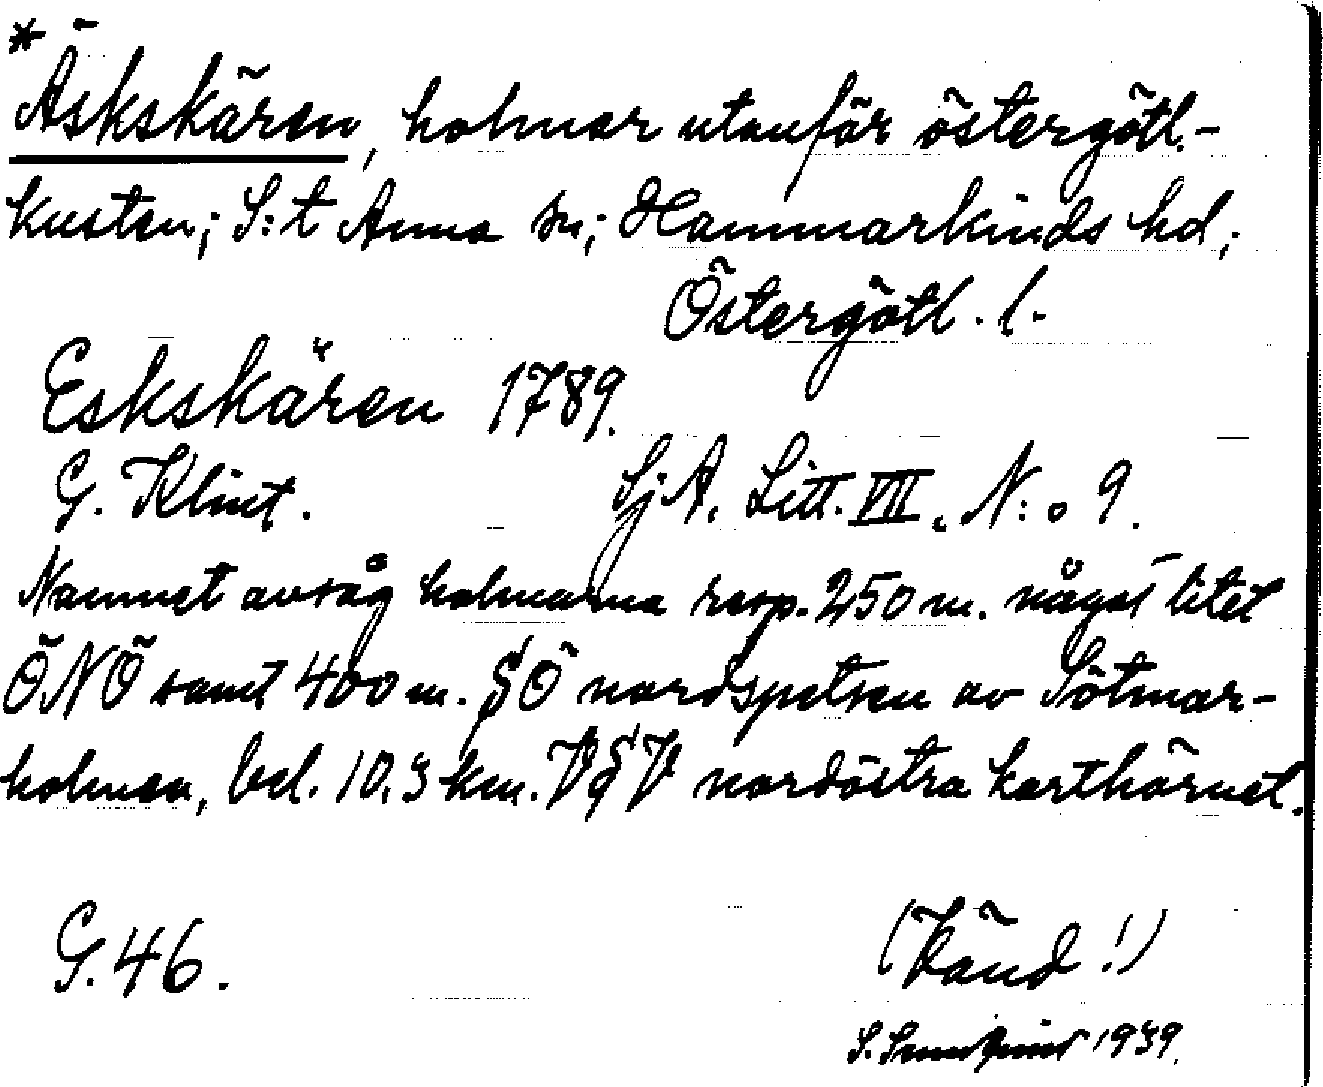 * Äskskären, holmar utanför östergötl.-
kusten; S:t Anna sn; Hammarkinds hd;
Östergötl. l.
Eskskären 1789.
G. Klint. SjA. Litt. VIII. N:o 9.
Namnet avsåg holmarna resp. 250 m. något litet
ÖNÖ samt 400 m. SÖ nordspetsen av Sötmar-
holmen, bel. 10,3 km. VSV nordöstra karthörnet.
G. 46. (Vänd!)
S. 1939.